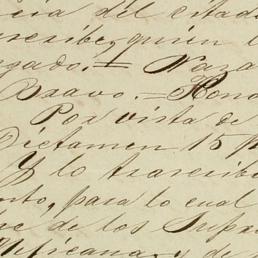 cia del estado
scribe, quien l
gado. = Nava
Bravo. = Hono
Por vista de
Dictamen 15 p
Y lo trascribo
nto, para lo cual
de los Supre
Mexicana, y de